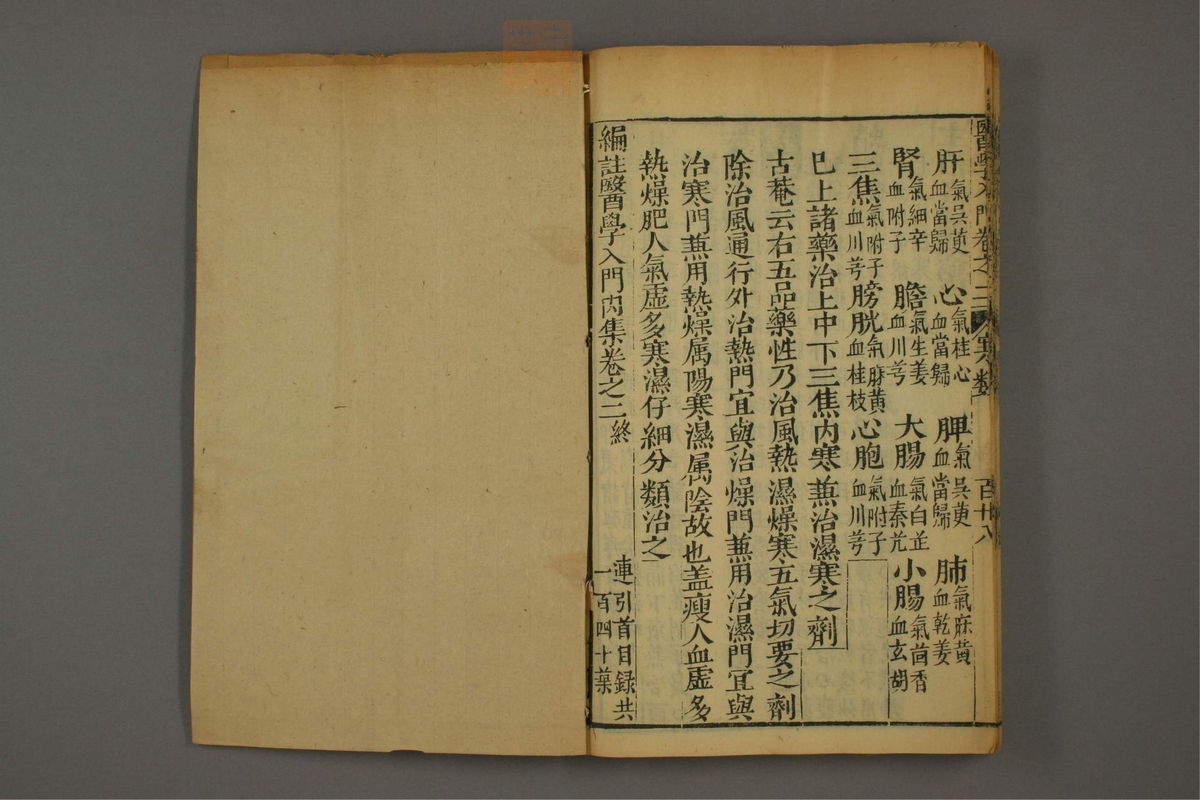 醫學入門卷之二 寒類 百廿八
肝氣吳茰血當歸 心氣桂心血當歸 脾氣吳茰血當歸 肺氣麻黃血乾姜
腎氣細辛血附子 膽氣生姜血川芎 大腸氣白芷血秦艽 小腸氣茴香血玄胡
三焦氣附子血川芎 膀胱氣麻黃血桂枝 心胞氣附子血川芎
巳上諸藥治上中下三焦內寒兼治濕寒之劑
古菴云右五品藥性乃治風熱濕燥寒五氣切要之劑
除治風通行外治熱門宜與治燥門兼用治濕門宜與
治寒門兼用熱燥属陽寒濕属陰故也盖瘦人血虛多
熱燥肥人氣虛多寒濕仔細分類治之
編註醫學入門內集卷之二終 連引首目録共一百四十葉